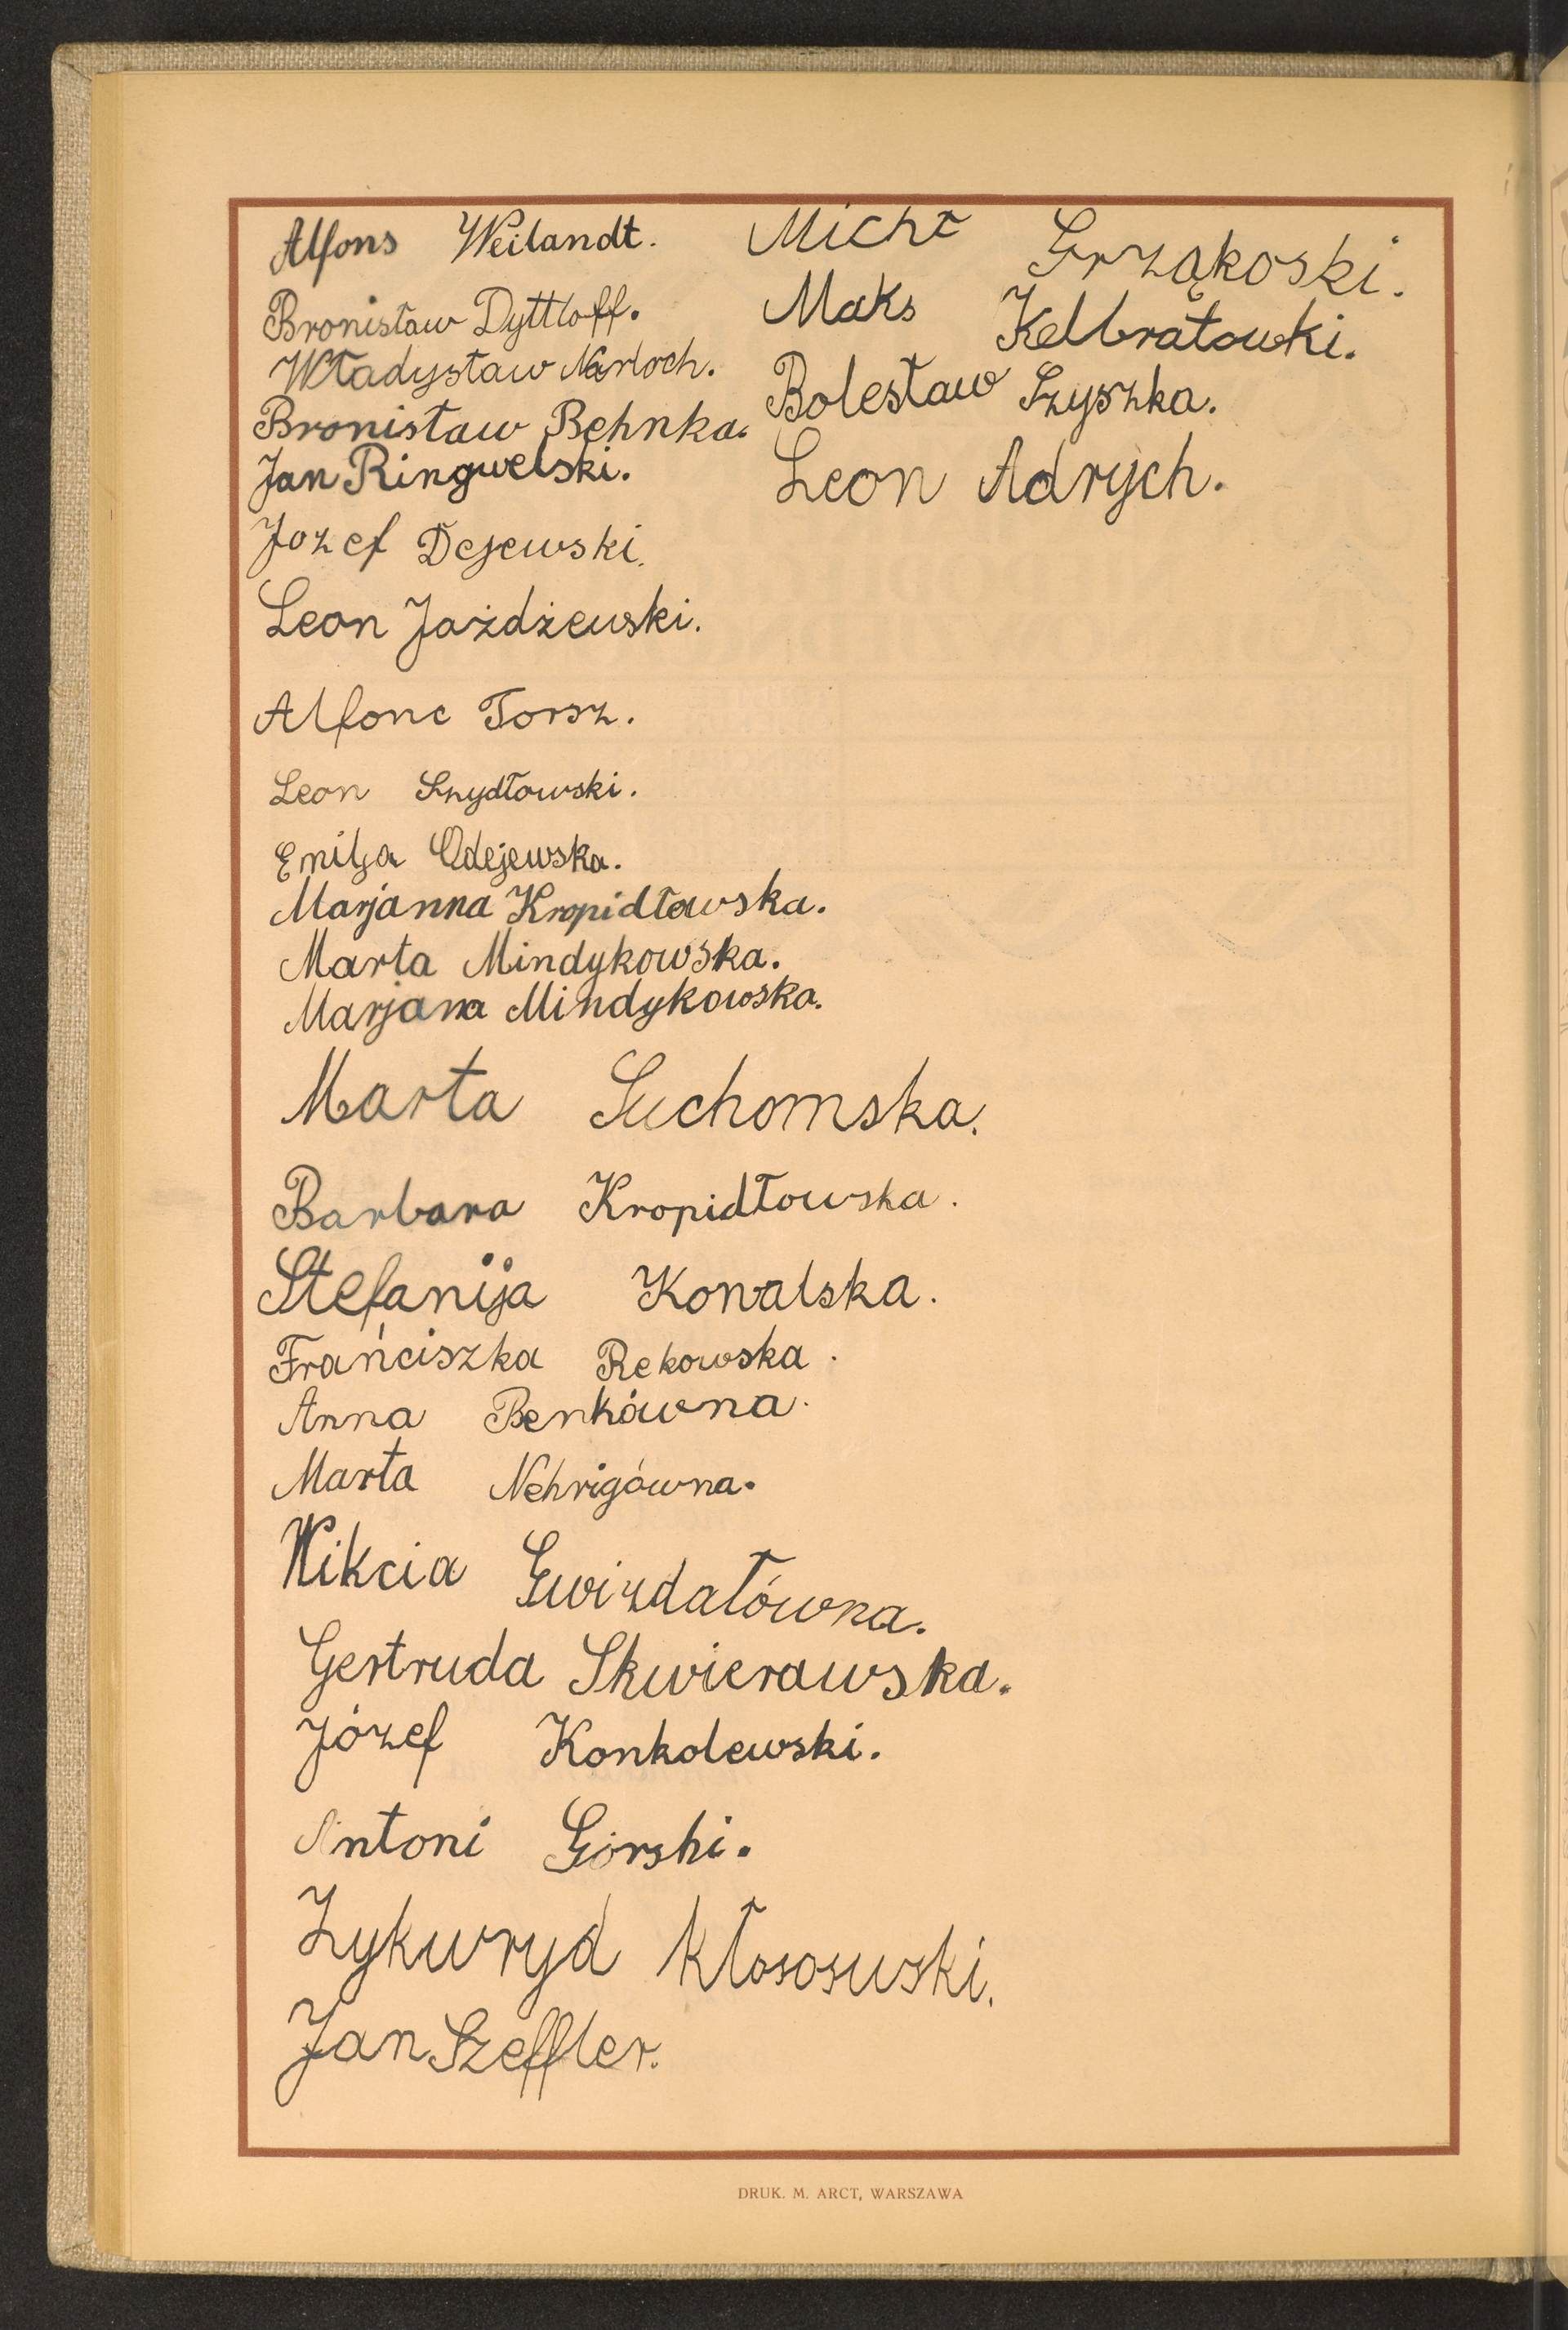 Alfons Weilandt.
Bronisław Dyttloff.
Władysław Narloch.
Bronisław Behnka.
Jan Ringwelski.
Jozef Dejewski.
Leon Jażdżewski.
Alfonc Torsz.
Leon Szydłowski.
Emilja Odejewska.
Marjanna Kropidłowska.
Marta Mindykowska.
Marjana Mindykowska.
Marta Suchomska.
Barbara Kropidłowska.
Stefanija Kowalska.
Frańciszka Rekowska.
Anna Benkówna.
Marta Nehrigówna.
Wikcia Gwizdałówna.
Gertruda Skwierawska.
Józef Konkolewski.
Antoni Górski.
Zykwryd Kłososwski.
Jan Szeffler.
Michł Grząkoski.
Maks Kelbratowki.
Bolesław Szyszka.
Leon Adrych.
DRUK. M. ARCT, WARSZAWA